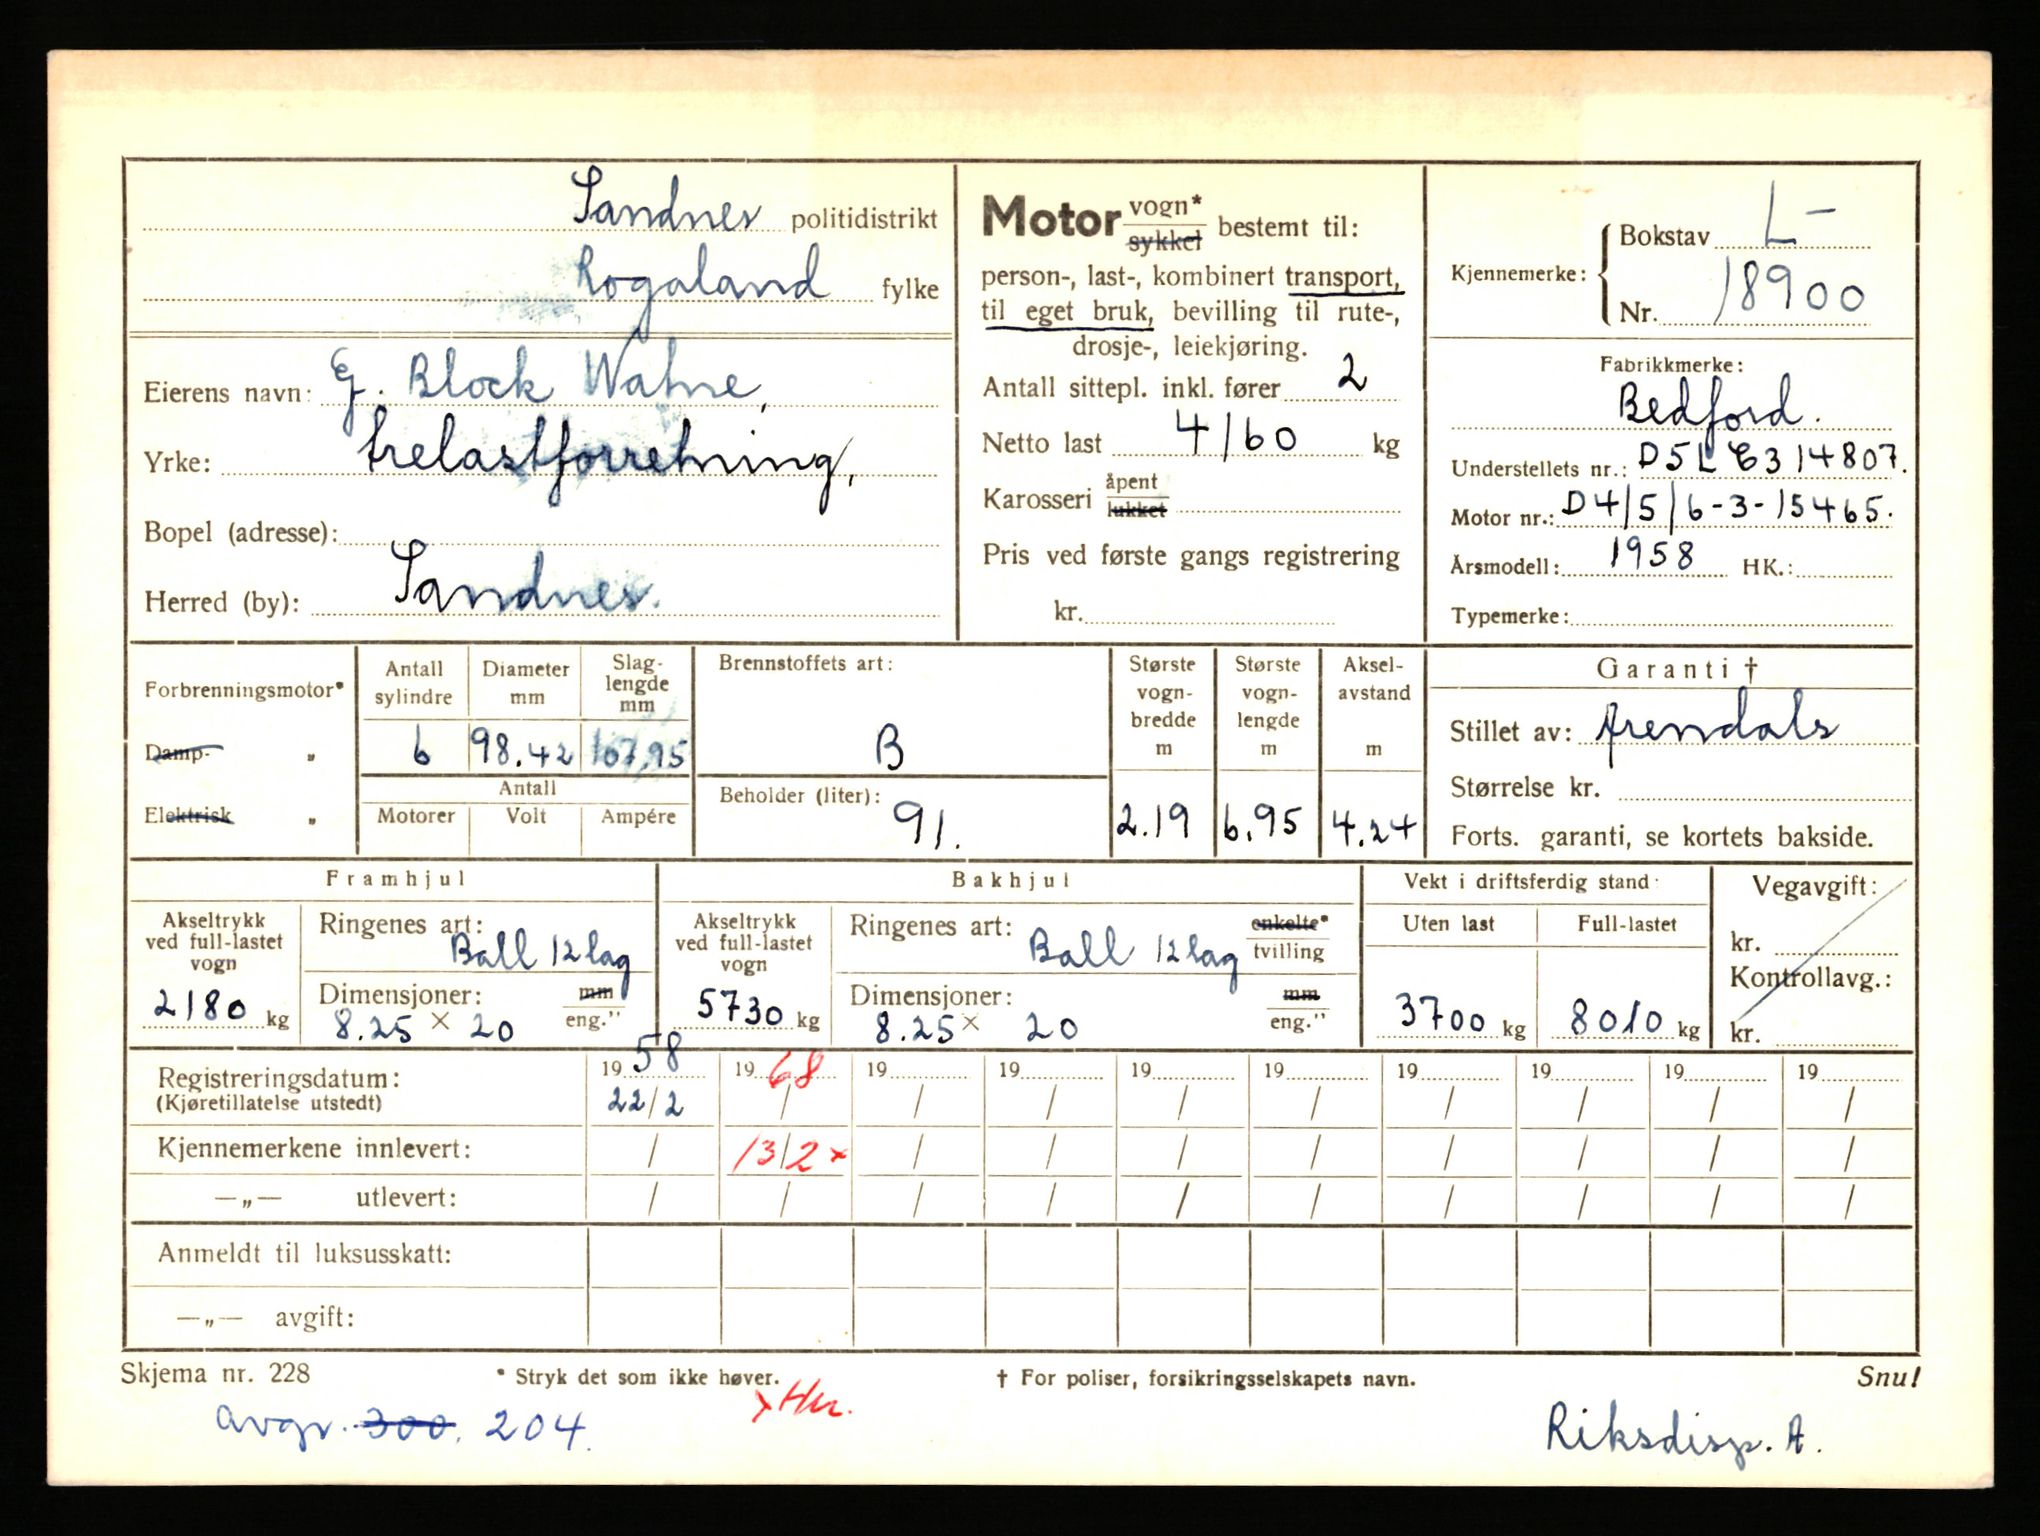 Sandnes politidistrikt
Rogaland fylke
Eierens navn: G. Block Watne,
Yrke: trelastforretning,
Bopel (adresse):
Herred (by): Sandnes.
Motor vogn* sykkel bestemt til:
person-, last-, kombinert transport,
til eget bruk, bevilling til rute-,
drosje-, leiekjøring.
Antall sittepl. inkl. fører 2
Netto last 4160 kg
Karosseri åpent lukket
Pris ved første gangs registrering
kr.
Kjennemerke: Bokstav L-
Nr. 18900
Fabrikkmerke:
Bedford.
Understellets nr.: D5LC314807.
Motor nr.: D4/5/6-3-15465.
Årsmodell: 1958 HK.:
Typemerke:
Forbrenningsmotor*
Damp- "
Elektrisk "
Antall sylindre Diameter mm Slag-lengde mm
6 98.42 107,95
Antall
Motorer Volt Ampére
Brennstoffets art:
B
Beholder (liter):
91.
Største vogn-bredde m
2.19
Største vogn-lengde m
6.95
Aksel-avstand m
4.24
Garanti †
Stillet av: Arendals
Størrelse kr.
Forts. garanti, se kortets bakside.
Framhjul
Akseltrykk ved full-lastet vogn
2180 kg
Ringenes art: Ball 12 lag
Dimensjoner: mm eng."
8.25 × 20
Bakhjul
Akseltrykk ved full-lastet vogn
5730 kg
Ringenes art: Ball 12 lag enkelte* tvilling
Dimensjoner: mm eng."
8.25 × 20
Vekt i driftsferdig stand
Uten last Full-lastet
3700 kg 8010 kg
Vegavgift:
kr.
Kontrollavg.:
kr.
Registreringsdatum: 19 58 19 68 19 19 19 19 19 19 19 19
(Kjøretillatelse utstedt) 22/2 / / / / / / / / /
Kjennemerkene innlevert: / 13/2 × / / / / / / / /
—„— utlevert: / / / / / / / / / /
Anmeldt til luksusskatt:
—„— avgift:
Skjema nr. 228 * Stryk det som ikke høver. † For poliser, forsikringsselskapets navn. Snu!
avgr. 300. 204.
Riksdisp. A.